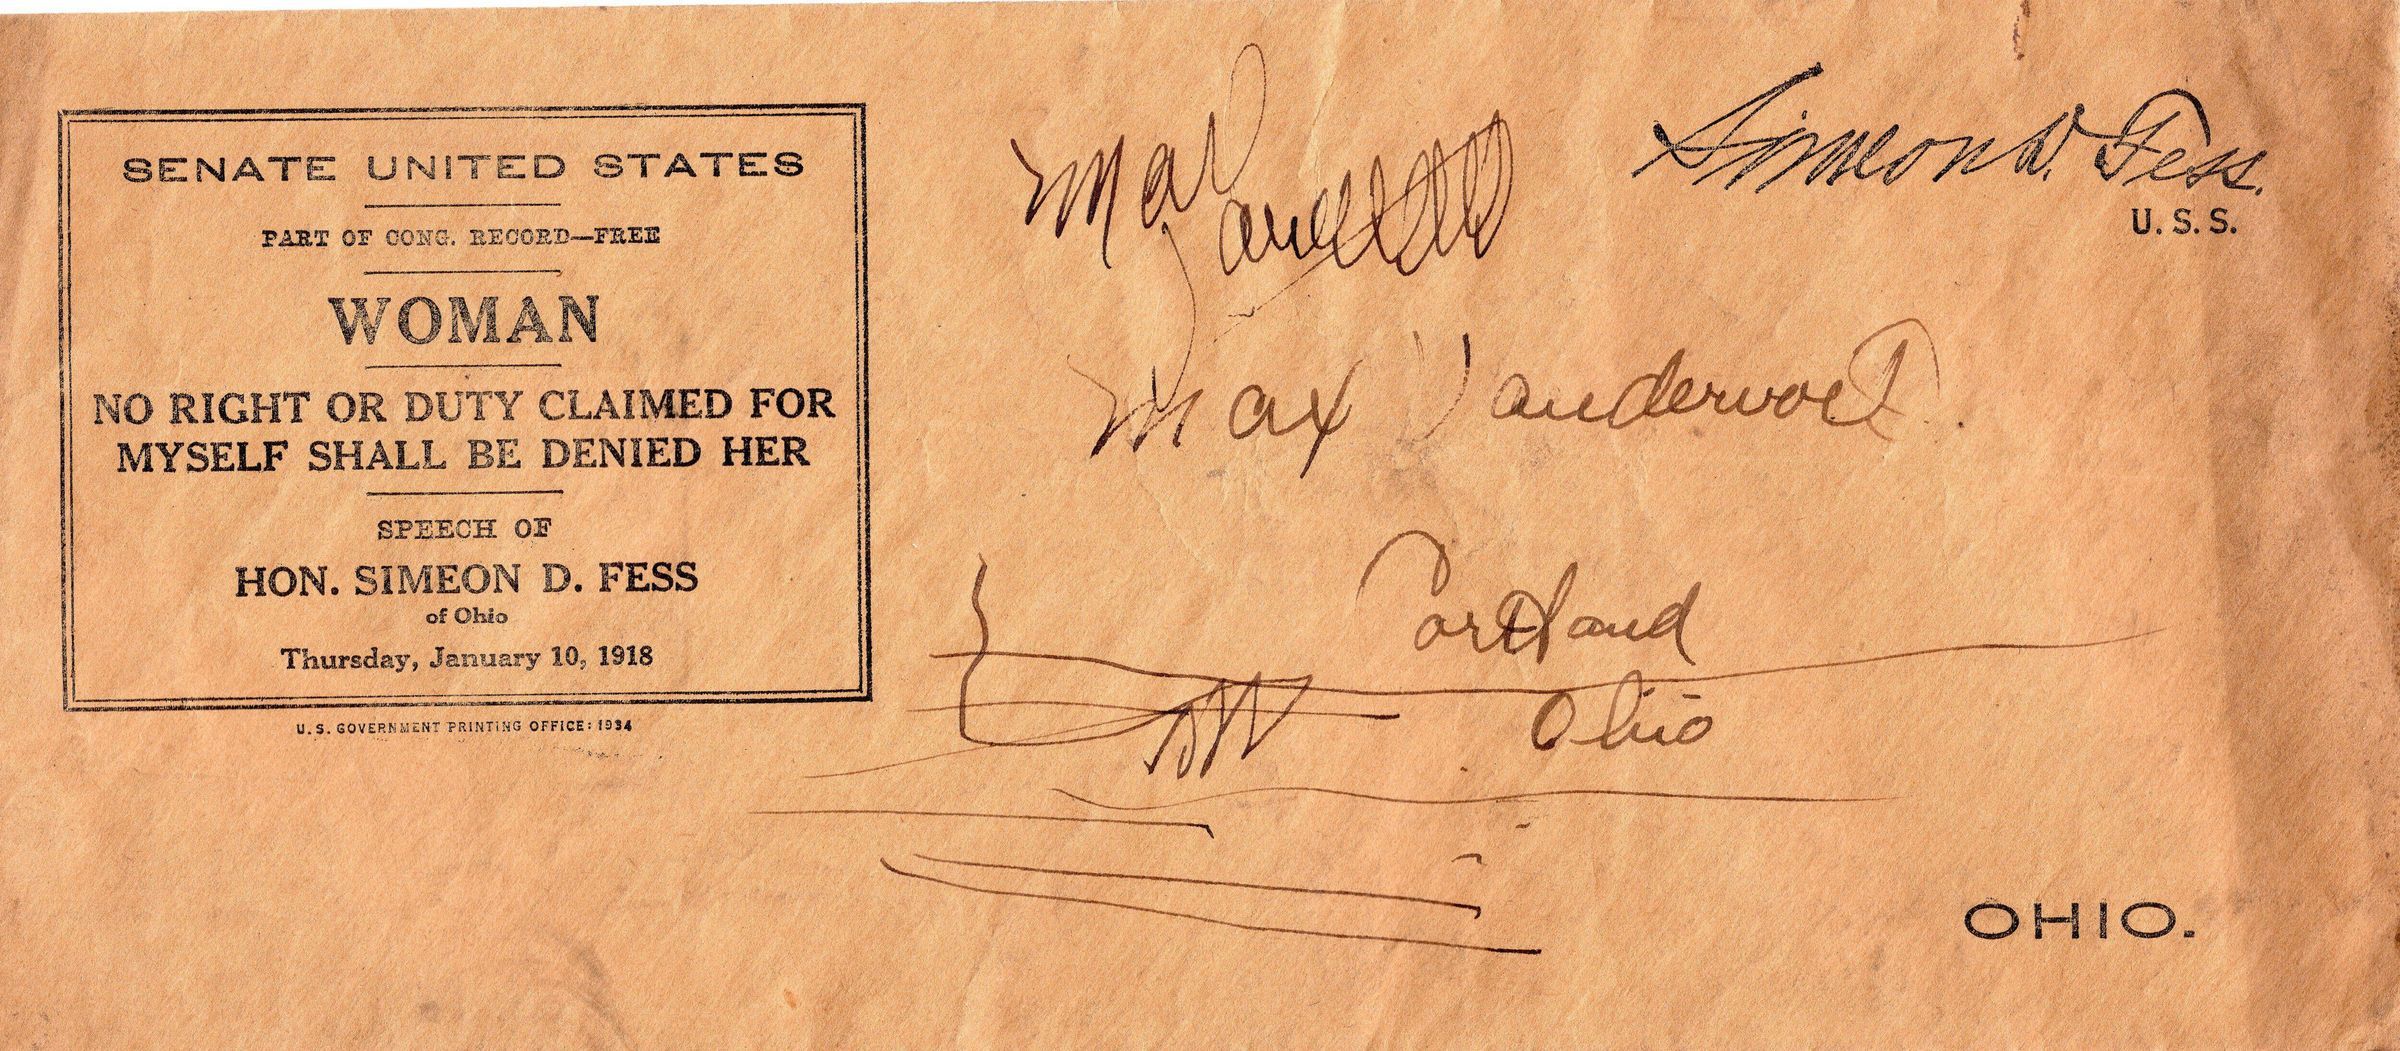 SENATE UNITED STATES
PART OF CONG. RECORD—FREE
WOMAN
NO RIGHT OR DUTY CLAIMED FOR
MYSELF SHALL BE DENIED HER
SPEECH OF
HON. SIMEON D. FESS
of Ohio
Thursday, January 10, 1918
U.S. GOVERNMENT PRINTING OFFICE: 1934
Simeon D. Fess.
U. S. S.
Max Vandervort
Cortland
Ohio
OHIO.